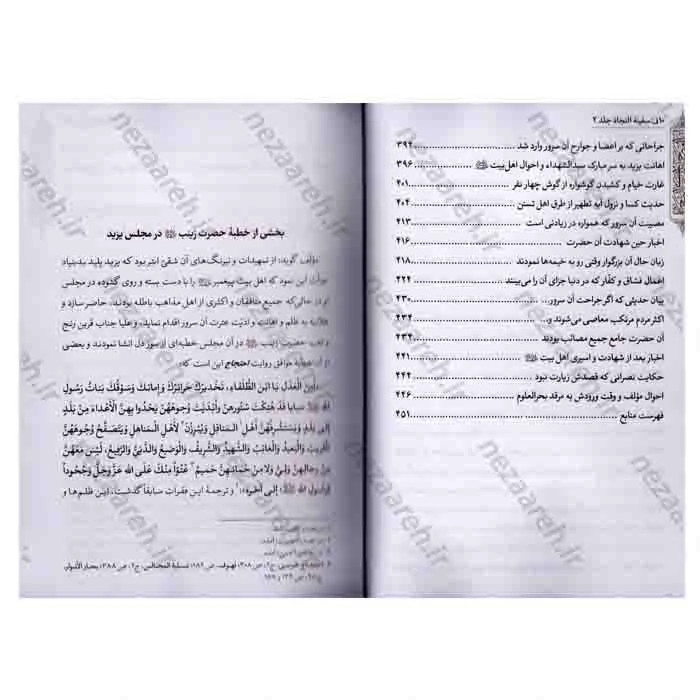 ۱۰ف سفینة النجاة جلد ۲
جراحاتی که بر اعضا و جوارح آن سرور وارد شد ۳۹۴
اهانت یزید به سر مبارک سیدالشهداء و احوال اهل‌بیت ۳۹۶
غارت خیام و کشیدن گوشواره از گوش چهار نفر ۴۰۱
حدیث کسا و نزول آیه تطهیر از طرق اهل تسنن ۴۰۴
مصیبت آن سرور که همواره در زیادتی است ۴۱۳
اخبار حین شهادت آن حضرت ۴۱۶
زبان حال آن بزرگوار وقتی رو به خیمه‌ها نمودند ۴۱۸
اعمال فساق و کفار که در دنیا جزای آن را می‌بینند ۴۲۴
بیان حدیثی که اگر جراحت آن سرور... ۴۳۰
اکثر مردم مرتکب معاصی می‌شوند و... ۴۳۴
آن حضرت جامع جمیع مصائب بودند ۴۳۴
اخبار بعد از شهادت و اسیری اهل بیت ۴۴۱
حکایت نصرانی که قصدش زیارت نبود ۴۴۴
احوال مؤلف و وقت ورودش به مرقد بحرالعلوم ۴۴۶
فهرست منابع ۴۵۱
بخشی از خطبهٔ حضرت زینب در مجلس یزید
مؤلف گوید: از تمهیدات و نیرنگ‌های آن شقیّ ابتر بود که یزید پلید بدبنیاد
این نمود که اهل بیت پیغمبر را با دست بسته و روی گشوده در مجلس
او در حالی‌که جمیع منافقان و اکثری از اهل مذاهب باطله بودند، حاضر سازد و
به ظلم و اهانت و اذیّت عترت آن سرور اقدام نماید، و علیا جناب قرین رنج
و محنت حضرت زینب در آن مجلس خطبه‌ای از سوز دل انشا نمودند و بعضی
از آن خطبه موافق روایت احتجاج این است که:
أمِنَ الْعَدْلِ یَا ابْنَ الطُّلَقَاءِ، تَخْدِیرُکَ حَرَائِرَکَ وَإِمَائَکَ وَسَوْقُکَ بَنَاتَ رَسُولِ
سَبَایَا قَدْ هَتَکْتَ سُتُورَهُنَّ وَأَبْدَیْتَ وُجُوهَهُنَّ یَحْدُوا بِهِنَّ الْأَعْدَاءُ مِنْ بَلَدٍ
إِلَی بَلَدٍ وَیَسْتَشْرِفُهُنَّ أَهْلُ الْمَنَاقِلِ وَیَبْرُزْنَ لِأَهْلِ الْمَنَاهِلِ وَیَتَصَفَّحُ وُجُوهَهُنَّ
الْقَرِیبُ وَالْبَعِیدُ وَالْغَائِبُ وَالشَّهِیدُ وَالشَّرِیفُ وَالْوَضِیعُ وَالدَّنِیُّ وَالرَّفِیعُ، لَیْسَ مَعَهُنَّ
مِنْ رِجَالِهِنَّ وَلِیٌّ وَلَا مِنْ حُمَاتِهِنَّ حَمِیمٌ عُتُوًّا مِنْکَ عَلَی اللهِ عَزَّ وَجَلَّ وَجُحُودًا
لِرَسُولِ اللهِ إلی آخره؛ و ترجمهٔ این فقرات سابقاً گذشت، این ظلم‌ها و
طبرسی، ج۲، ص ۳۰۸؛ لهوف، ص ۱۸۲؛ تسلیة المجالس، ج۲، ص ۳۸۸؛ بحار الأنوار،
nezaareh.ir
nezaareh.ir
nezaareh.ir
nezaareh.ir
nezaareh.ir
nezaareh.ir